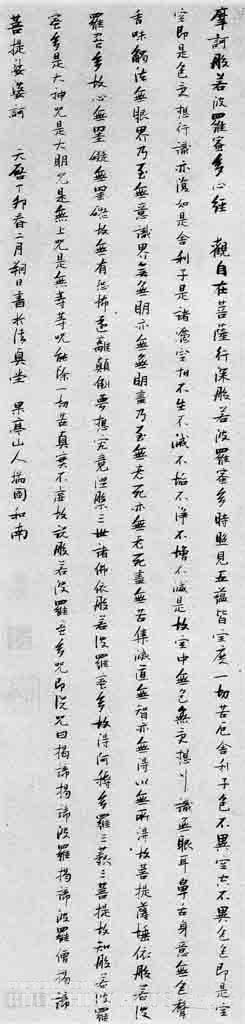 摩訶般若波羅蜜多心經 觀自在菩薩行深般若波羅蜜多時照見五蘊皆空度一切苦厄舍利子色不異空空不異色色即是空
空即是色受想行識亦復如是舍利子是諸法空相不生不滅不垢不淨不增不減是故空中無色無受想行識無眼耳鼻舌身意無色聲
香味觸法無眼界乃至無意識界無無明亦無無明盡乃至無老死亦無老死盡無苦集滅道無智亦無得以無所得故菩提薩埵依般若波
羅蜜多故心無罣礙無罣礙故無有恐怖遠離顛倒夢想究竟涅槃三世諸佛依般若波羅蜜多故得阿耨多羅三藐三菩提故知般若波羅
蜜多是大神咒是大明咒是無上咒是無等等咒能除一切苦真實不虛故說般若波羅蜜多咒即說咒曰揭諦揭諦波羅揭諦波羅僧揭諦
菩提娑婆訶 天啟丁卯春二月朔日書於法真堂 果亭山人瑞圖和南